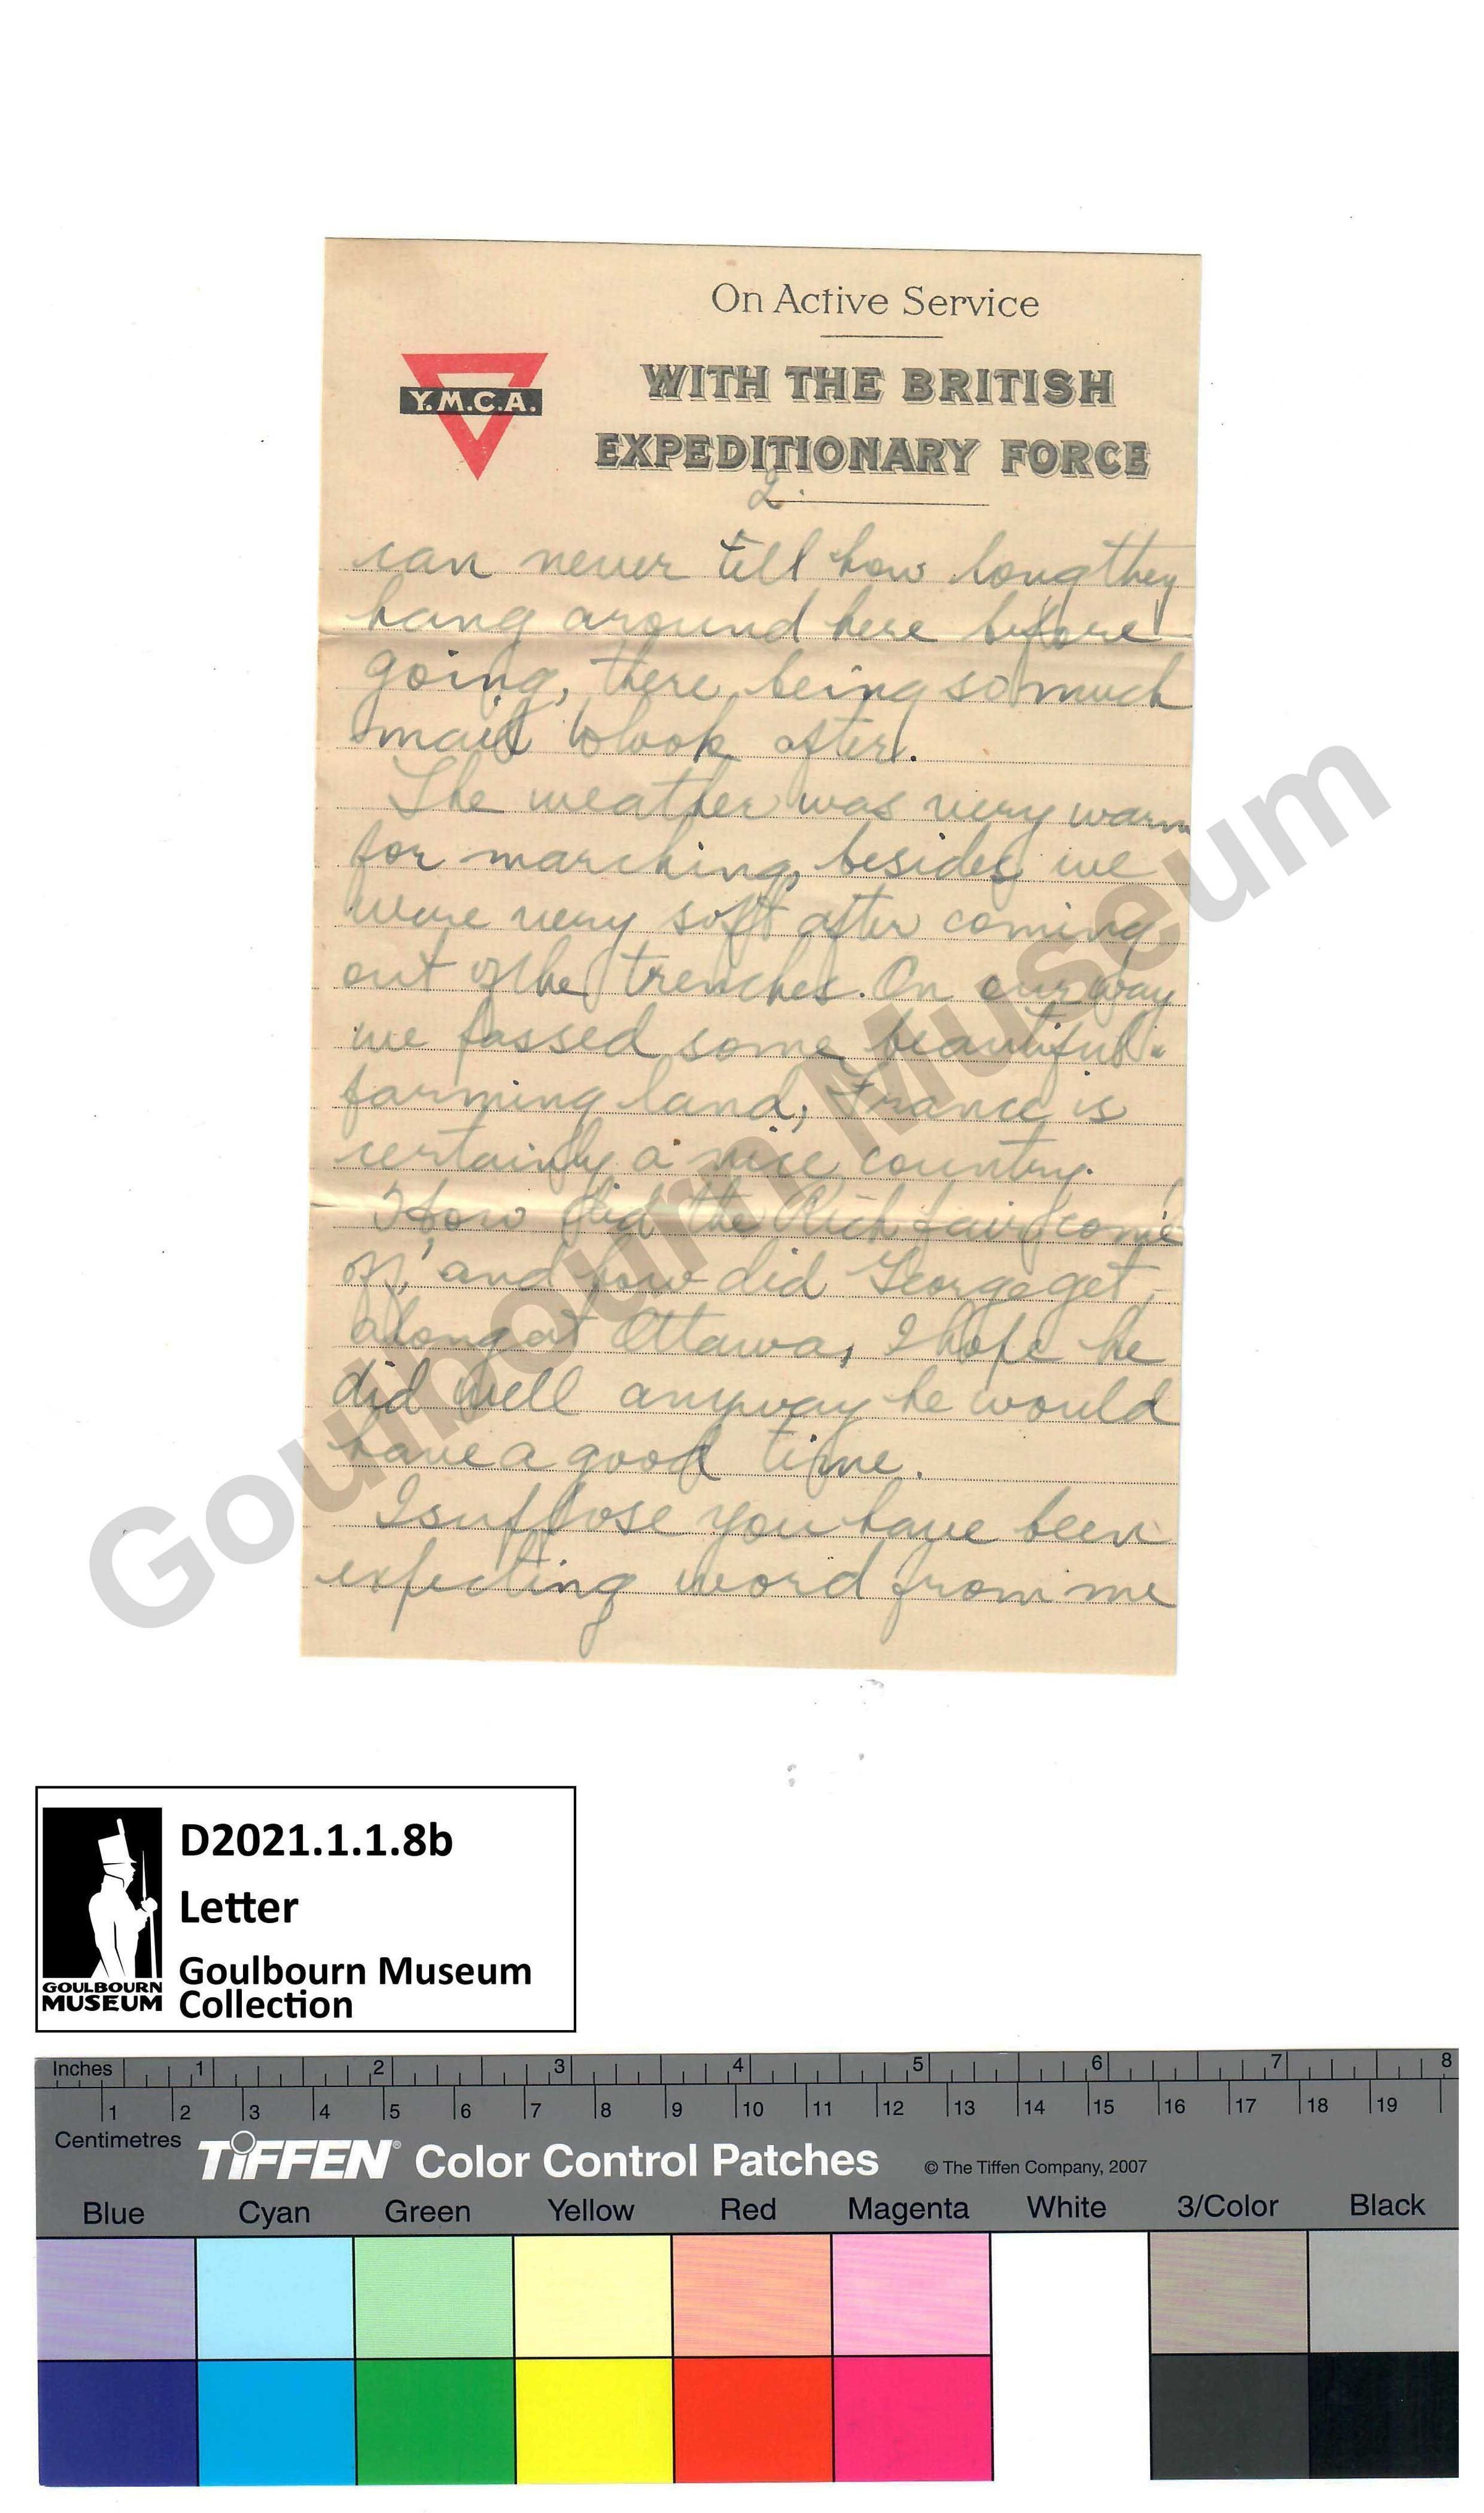 On Active Service
Y.M.C.A.
WITH THE BRITISH
EXPEDITIONARY FORCE
2.
can never tell how long they
hang around here before
going, there being so much
mail to look after.
The weather was very warm
for marching, besides we
were very soft after coming
out of the trenches. On our way
we passed some beautiful
farming land, France is
certainly a nice country.
How did the Rich fair come
off, and how did George get
along at Ottawa, I hope he
did well anyway he would
have a good time.
I suppose you have been
expecting word from me
Goulbourn Museum
D2021.1.1.8b
Letter
Goulbourn Museum
Collection
GOULBOURN
MUSEUM
Inches 1 2 3 4 5 6 7 8
1 2 3 4 5 6 7 8 9 10 11 12 13 14 15 16 17 18 19
Centimetres
TIFFEN® Color Control Patches © The Tiffen Company, 2007
Blue Cyan Green Yellow Red Magenta White 3/Color Black